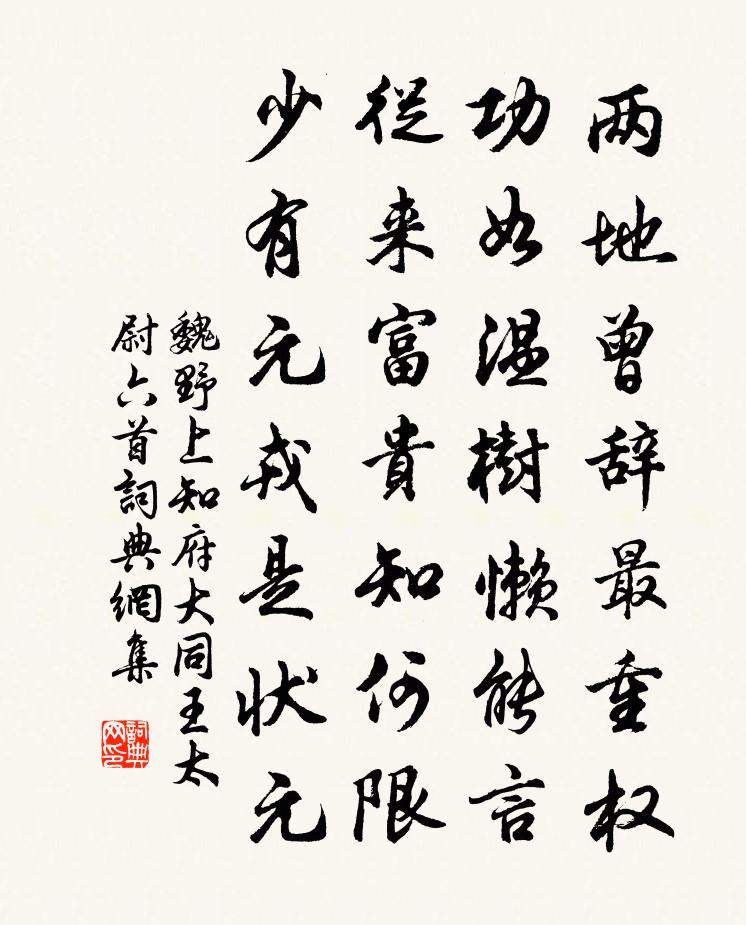 两地曾辞最重权
功如温樹懒能言
從来富貴知何限
少有元戎是状元
魏野上知府大同王太
尉六首詞典網集
詞典网印